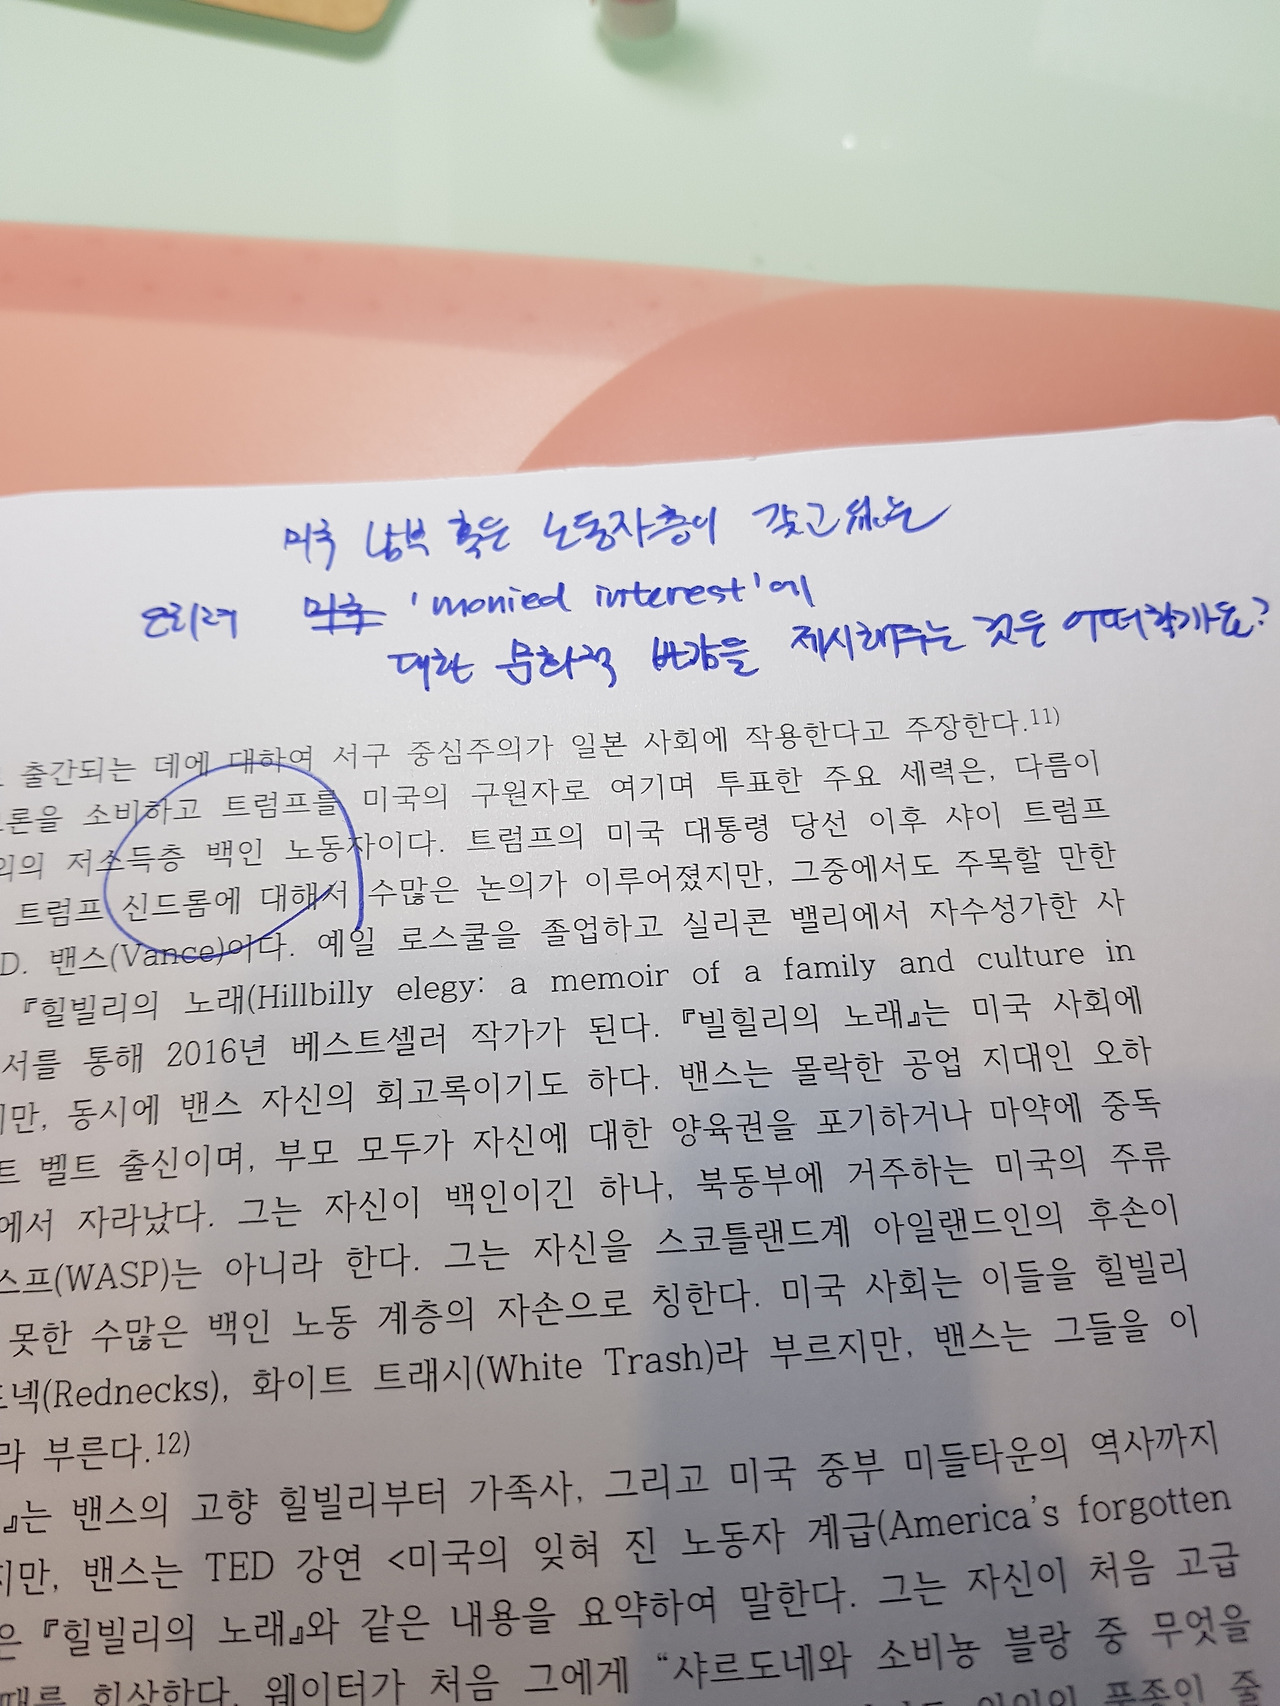 미국 남부 혹은 노동자층이 갖고 있는
오히려 미국 'monied interest'에
대한 문화적 반감을 제시해주는 것은 어떠할까요?
출간되는 데에 대하여 서구 중심주의가 일본 사회에 작용한다고 주장한다.11)
론을 소비하고 트럼프를 미국의 구원자로 여기며 투표한 주요 세력은, 다름이
의 저소득층 백인 노동자이다. 트럼프의 미국 대통령 당선 이후 샤이 트럼프
트럼프 신드롬에 대해서 수많은 논의가 이루어졌지만, 그중에서도 주목할 만한
D. 밴스(Vance)이다. 예일 로스쿨을 졸업하고 실리콘 밸리에서 자수성가한 사
『힐빌리의 노래(Hillbilly elegy: a memoir of a family and culture in
서를 통해 2016년 베스트셀러 작가가 된다. 『빌힐리의 노래』는 미국 사회에
지만, 동시에 밴스 자신의 회고록이기도 하다. 밴스는 몰락한 공업 지대인 오하
트 벨트 출신이며, 부모 모두가 자신에 대한 양육권을 포기하거나 마약에 중독
에서 자라났다. 그는 자신이 백인이긴 하나, 북동부에 거주하는 미국의 주류
스프(WASP)는 아니라 한다. 그는 자신을 스코틀랜드계 아일랜드인의 후손이
못한 수많은 백인 노동 계층의 자손으로 칭한다. 미국 사회는 이들을 힐빌리
드넥(Rednecks), 화이트 트래시(White Trash)라 부르지만, 밴스는 그들을 이
라 부른다.12)
』는 밴스의 고향 힐빌리부터 가족사, 그리고 미국 중부 미들타운의 역사까지
지만, 밴스는 TED 강연 <미국의 잊혀 진 노동자 계급(America's forgotten
은 『힐빌리의 노래』와 같은 내용을 요약하여 말한다. 그는 자신이 처음 고급
때를 회상한다. 웨이터가 처음 그에게 “샤르도네와 소비뇽 블랑 중 무엇을